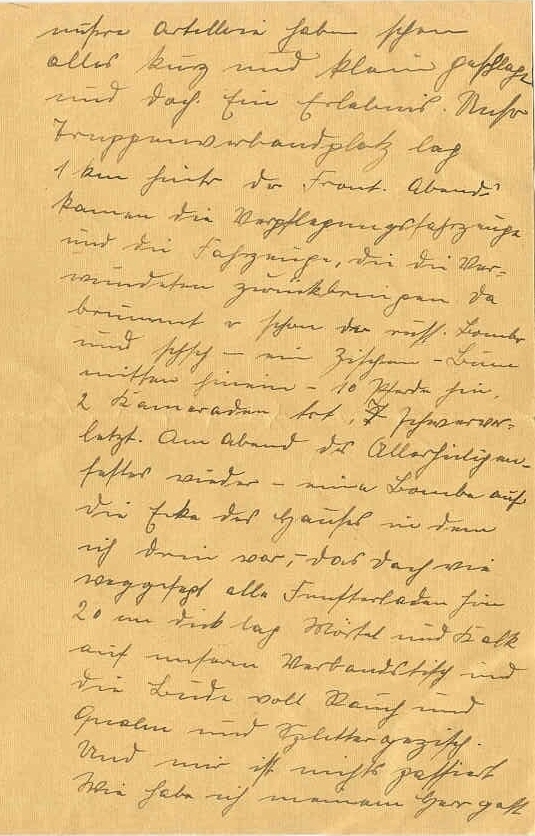 unsre Artillerie haben schon
alles kurz und klein geschlagen
und doch. Ein Erlebnis. Unser
Truppenverbandplatz lag
1 km hinter der Front. Abends
kamen die Verpflegungsfahrzeuge
und die Fahrzeuge, die die Ver-
wundeten zurückbringen da
brummt schon der russ. Bomber
und schsch – ein Zischen – Bum
mitten hinein – 10 Pferde hin,
2 Kameraden tot, 7 schwerver-
letzt. Am Abend des Allerheiligen-
festes wieder – eine Bombe auf
die Ecke des Hauses in dem
ich drin war, – das Dach wie
weggefegt alle Fensterladen hin
20 cm dick lag Mörtel und Kalk
auf unserm Verbandstisch und
die Bude voll Rauch und
Qualm und Splittergezisch.
Und mir ist nichts passiert
Wie habe ich meinem Herrgott